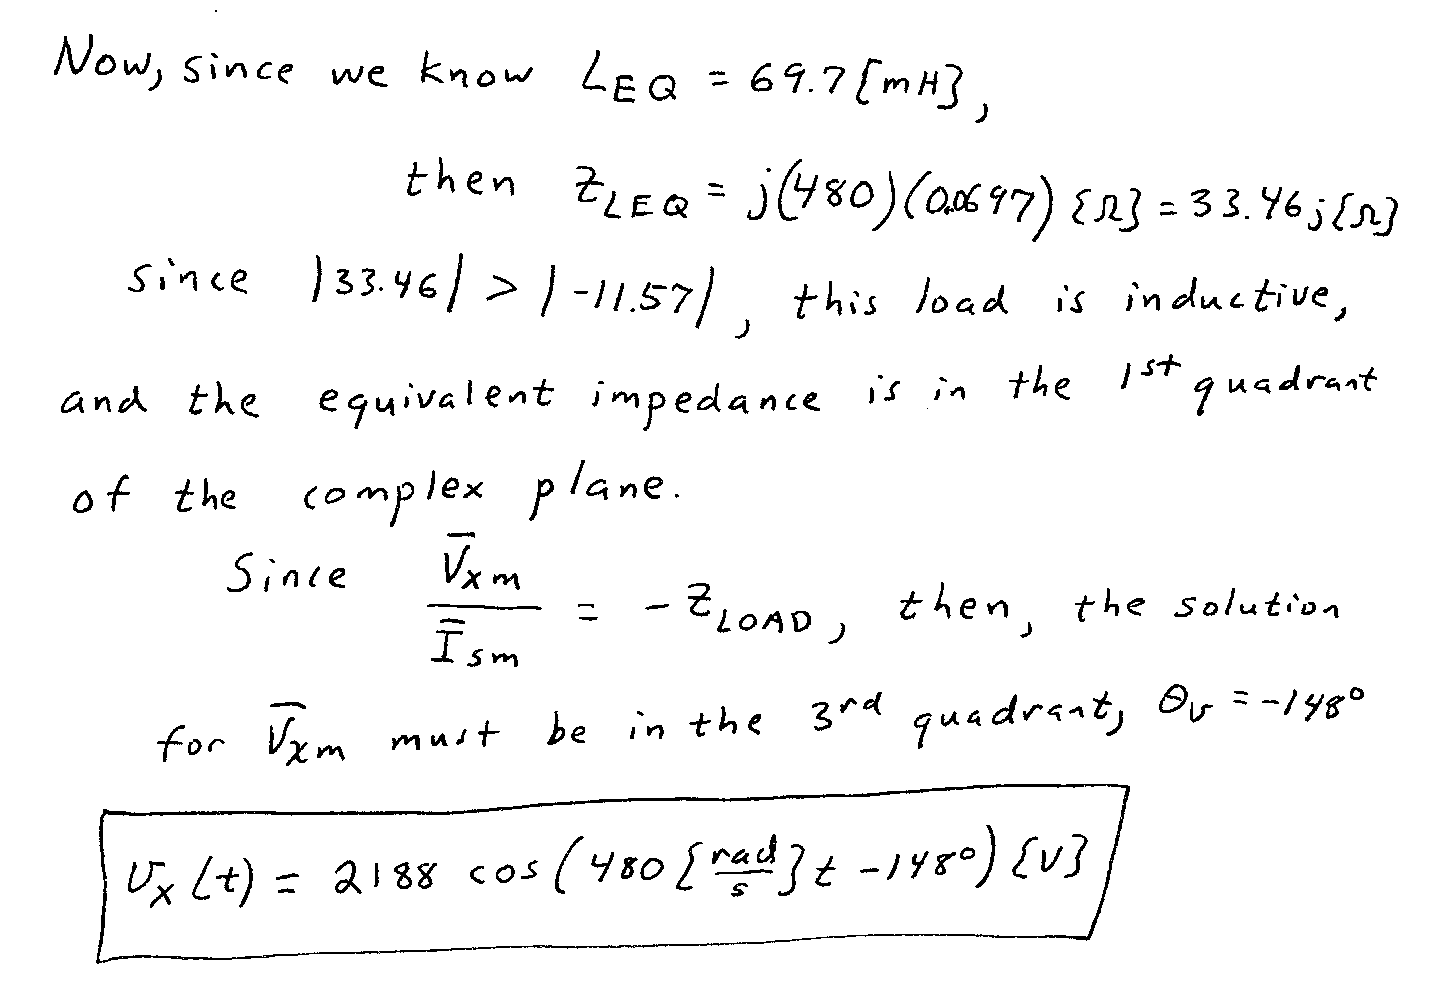 Now, since we know L_EQ = 69.7 [mH],
then Z_LEQ = j(480)(0.0697) {Ω} = 33.46j[Ω]
since |33.46| > |-11.57|, this load is inductive,
and the equivalent impedance is in the 1st quadrant
of the complex plane.
Since V̅xm / I̅sm = -Z_LOAD, then, the solution
for V̅xm must be in the 3rd quadrant, θv = -148°
vx(t) = 2188 cos(480 [rad/s] t - 148°) {V}